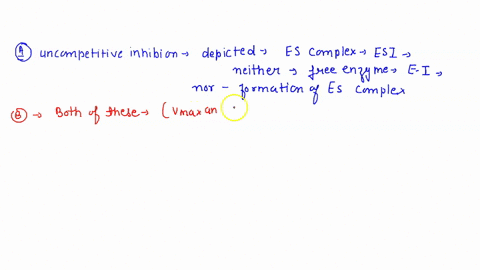 Ⓐ uncompetitive inhibion → depicted → ES Complex → ESI →
neither → free enzyme → E-I →
nor - formation of ES complex
Ⓑ → Both of these → (Vmax an